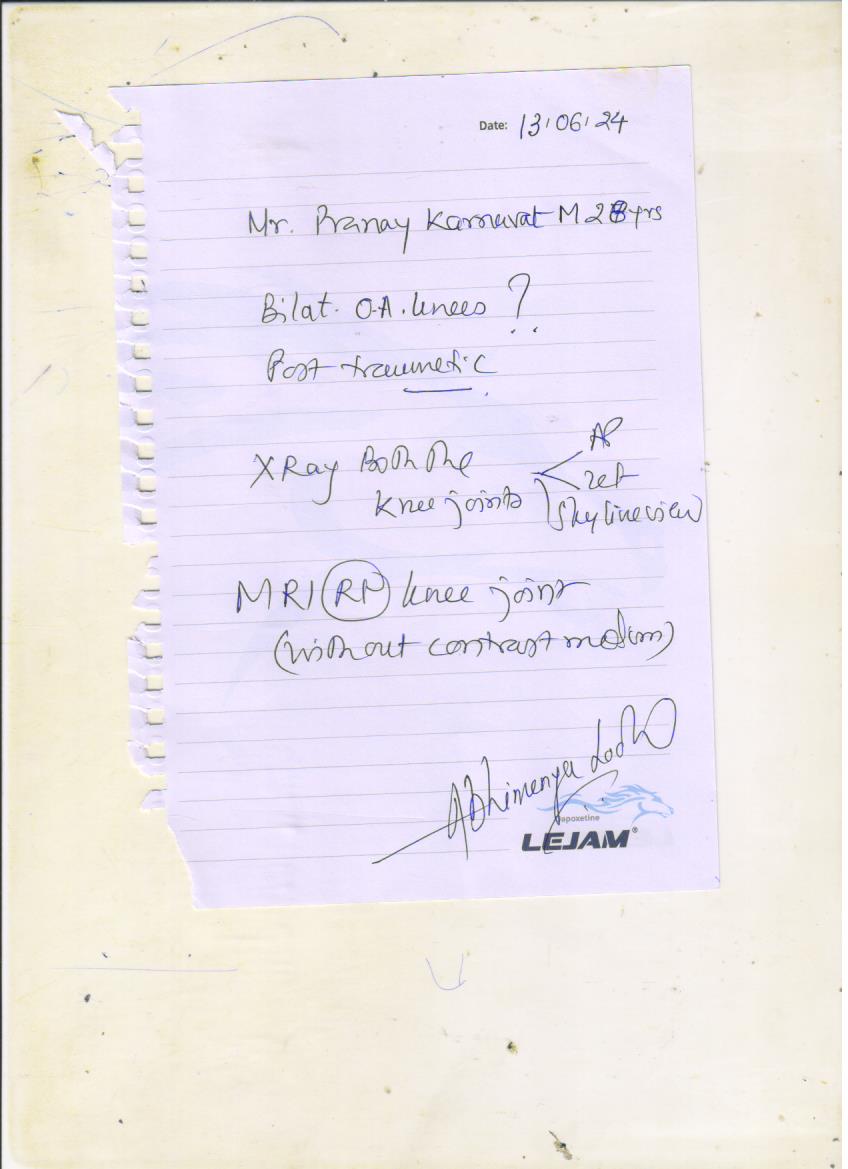 Date: 13/06/24
Mr. Pranay Karnavat M 28yrs
Bilat. O.A. knees ?
Post traumetic
X Ray Both the AP
knee joints
Skyline view
MRI knee joint
(without contrast medium)
Abhimenyu
Dapoxetine
LEJAM®